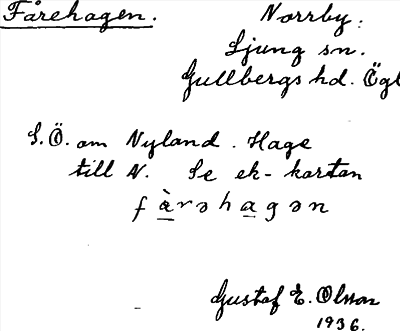 Fårehagen. Norrby:
Ljung sn.
Gullbergs hd. Ögl
S.Ö. om Nyland. Hage
till N. Se ek-kartan
fàrəhagən
Gustaf E. Olsson
1936.